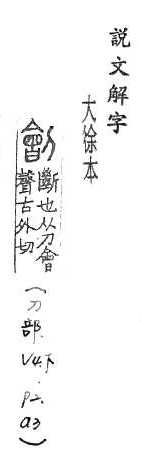 說文解字
大徐本
劊
斷也从刀會
聲古外切
(刀部.
V4.下.
P2.
a3)